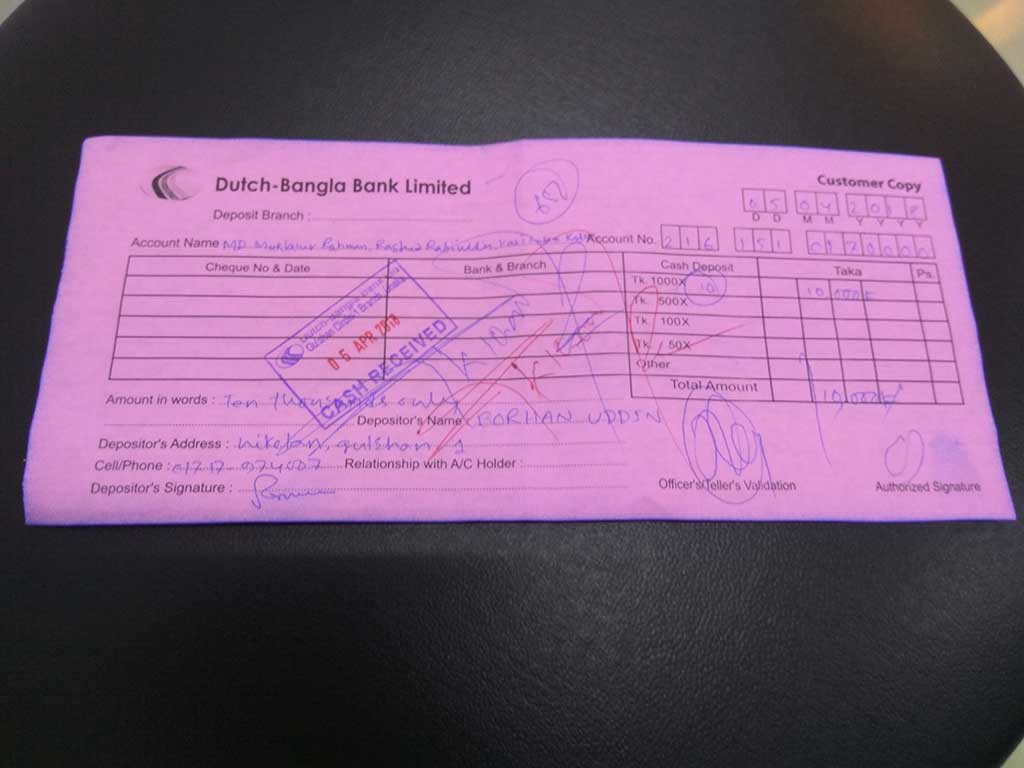 Dutch-Bangla Bank Limited
Customer Copy
Deposit Branch :
05 04 2018
D D M M Y Y Y Y
Account Name MD. Rahman, Account No. 216 151
Cheque No & Date Bank & Branch Cash Deposit Taka Ps.
Tk. 1000X 10 10,000/-
Tk. 500X
Tk. 100X
Tk. 50X
Other
Total Amount 10,000/-
05 APR 2018
CASH RECEIVED
Amount in words : Ten thousands only
Depositor's Name : BORHAN UDDIN
Depositor's Address : Niketan, gulshan 1
Cell/Phone : Relationship with A/C Holder :
Depositor's Signature :
Officer's/Teller's Validation
Authorized Signature